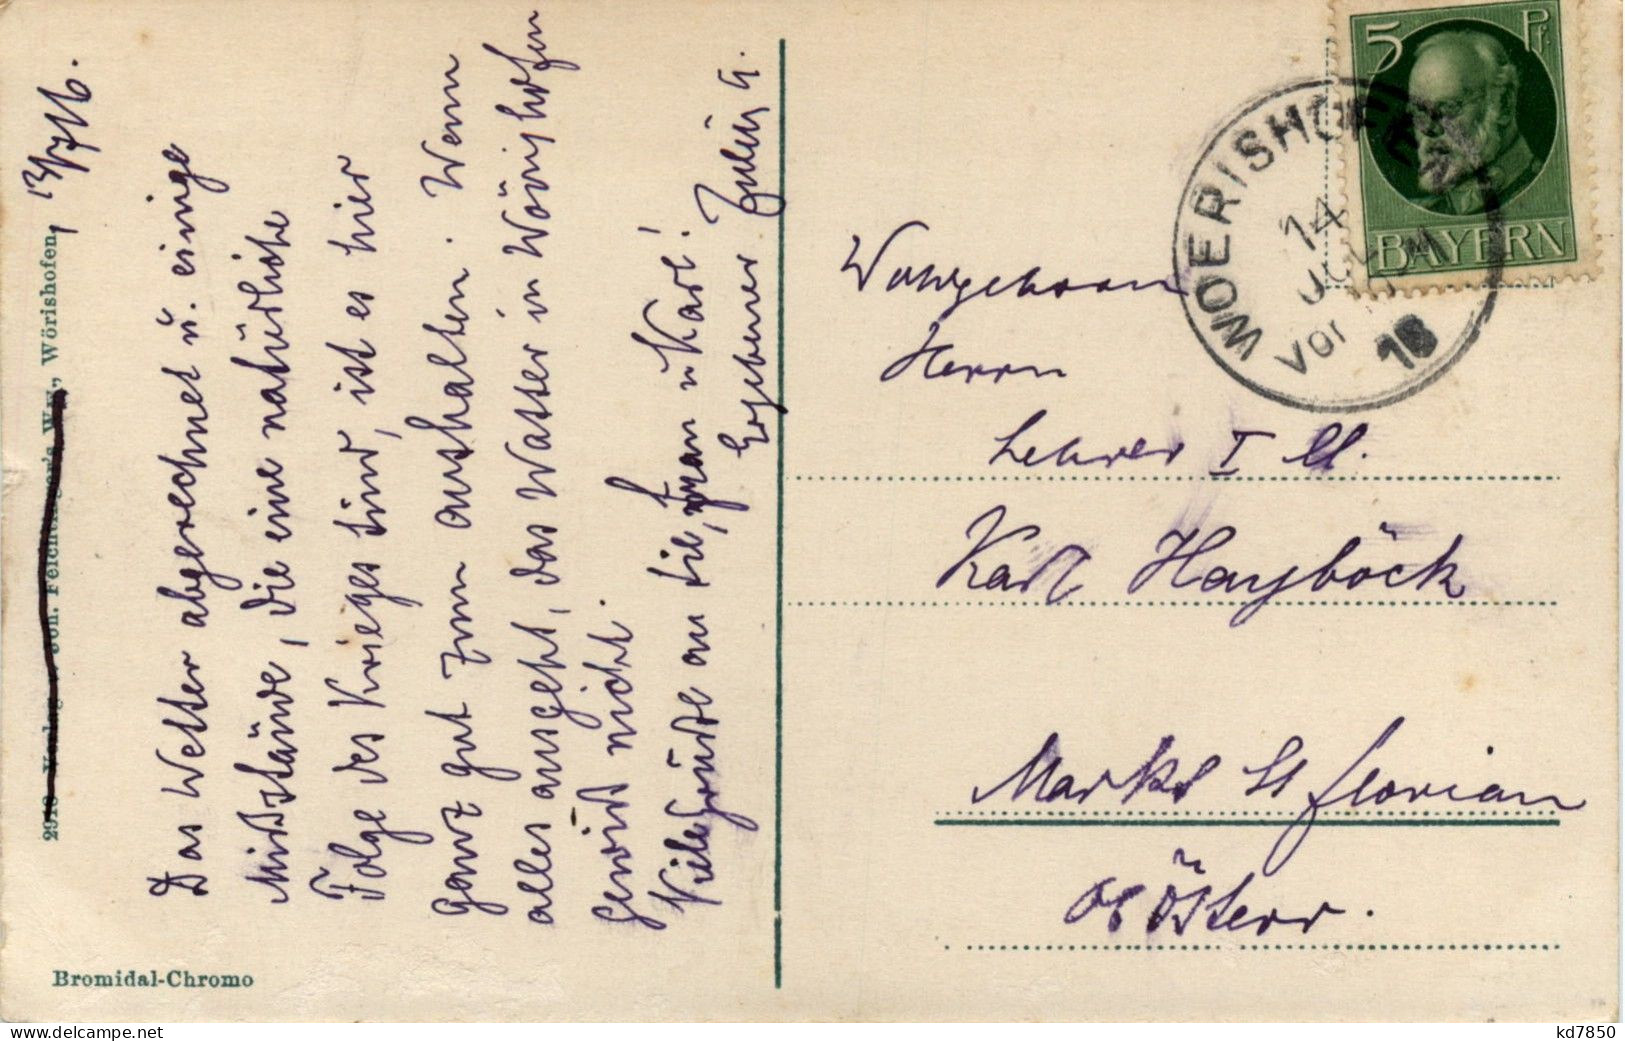 Wörishofen, 13/7 16.
Das Wetter abgerechnet u. einige
Mißstände, die eine natürliche
Folge des Krieges sind, ist es hier
ganz gut zum aushalten. Wenn
alles ausgeht, das Wasser in Wörishofen
gewiß nicht.
Viele Grüße an Sie, Frau u Karl!
Ergebener
2918 Verlag v. Joh. Feichtinger's Ww., Wörishofen
Bromidal-Chromo
5 Pf.
BAYERN
WOERISHOFEN
14
JUL
Vor
16
Wohlgeboren
Herrn
Lehrer I Kl.
Karl Hayböck
Markt St Florian
Ob Österr.
www.delcampe.net
kd7850